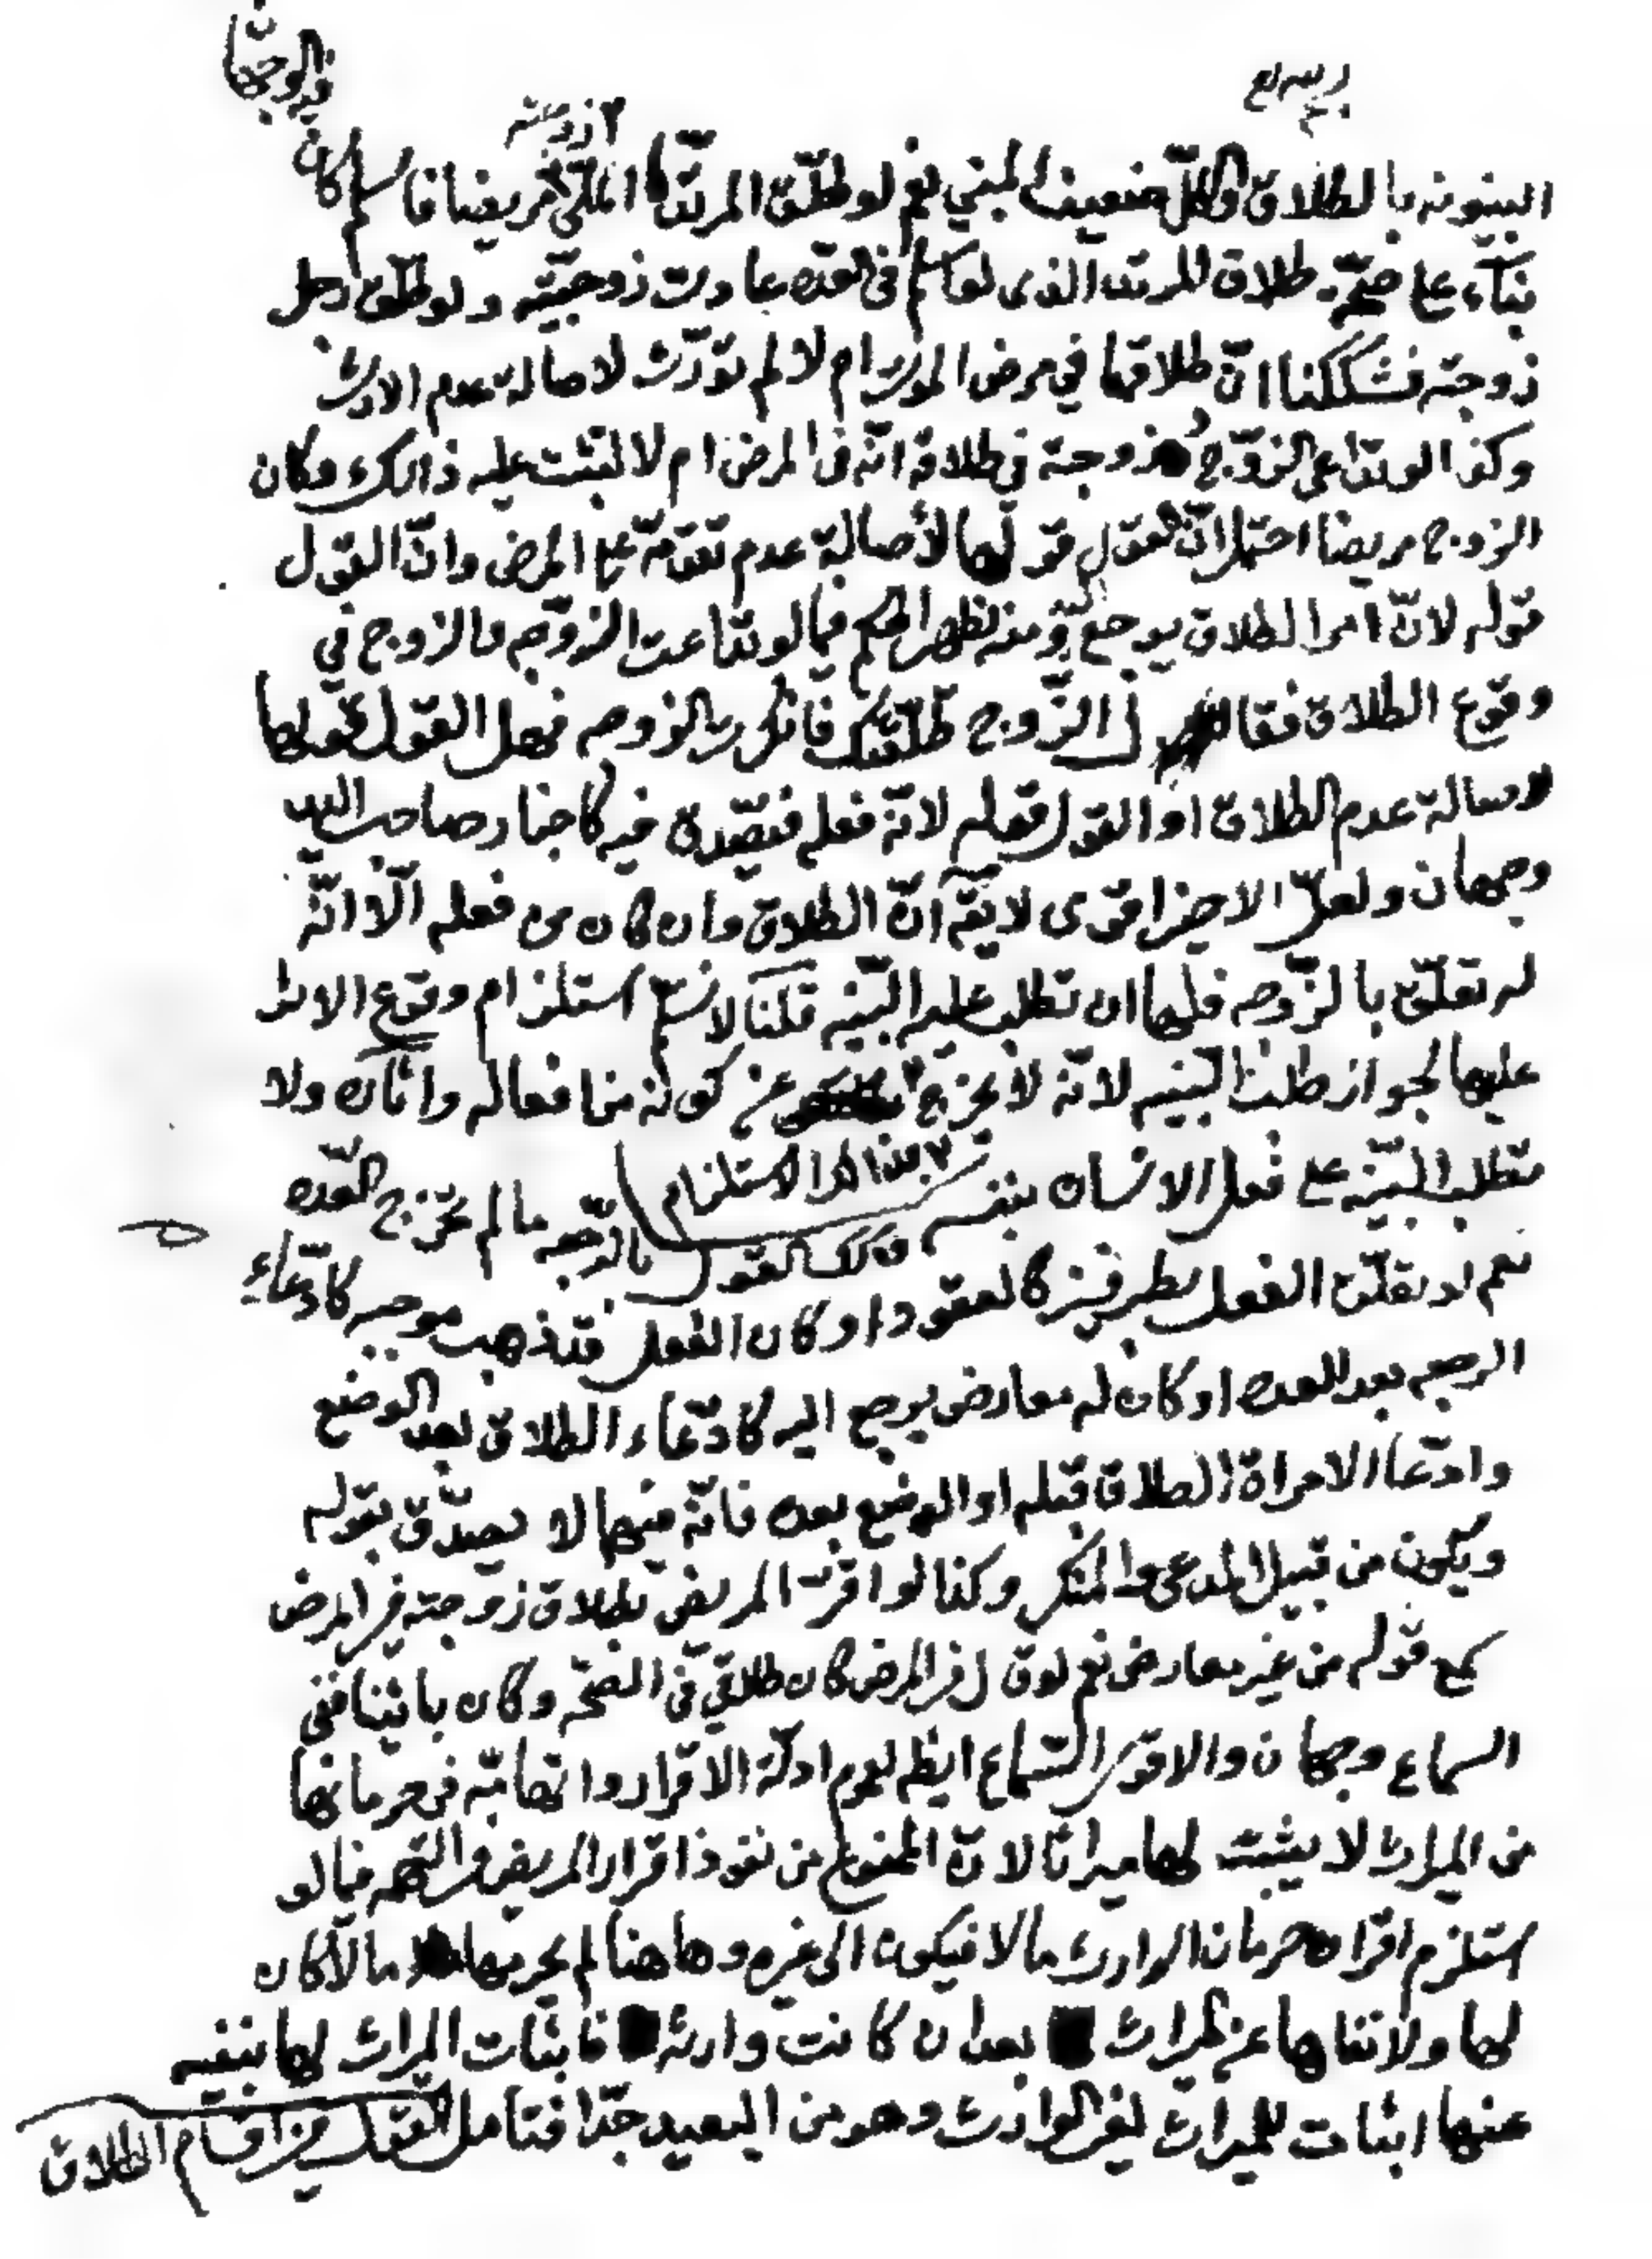 فيه الوجهان
البينونه بالطلاق والكل ضعيف المبني نعم لو طلق المرتد الملي مريضا فاسلم كان
بناء على صحة طلاق المرتد الذى لو اسلم فى العده عادت زوجيته ولو طلق رجل
زوجته فشككنا ان طلاقها في مرض الموت ام لا لم تورث لاصالة عدم الارث
وكذا لو تداعى الزوج وزوجته في طلاقه انه فى المرض ام لا عليه ذلك وكان
الزوج مريضا احتمل ان القول قولها لأصالة عدم تقدمه على المرض وان القول
قوله لان امر الطلاق يرجع اليه ومنه يظهر الحكم فيما لو تداعت الزوجه والزوج في
وقوع الطلاق فقال الزوج طلقتك فانكرت الزوجه فهل القول قولها
لاصالة عدم الطلاق او القول قوله لانه فعله فيصدق فيه كاخبار صاحب اليد
وجهان ولعل الاخير اقوى لا يقال ان الطلاق وان كان من فعله الا انه
له تعلق بالزوجه فلها ان تطلب عليه البينه قلنا لا نسلم استلزام وقوع الاثر
عليها لجواز طلب البينه لانه لا يخرج عن كونه من افعاله واثاره ولا
تطلب البينه على فعل الانسان بنفسه بهذا الاستلزام وكذلك القول بالرجعه ما لم تخرج العده
نعم لو تعلق الفعل بطرفين كالعقود او كان الفعل قد ذهب موجبه كادعاء
الرجعه بعد العده او كان له معارض يرجع اليه كادعاء الطلاق بعد الوضع
وادعاء الامراة الطلاق قبله او الوضع بعده فانه فيها لا يصدق بقوله
ويكون من قبيل المدعي والمنكر وكذا لو اقر المريض بطلاق زوجته في المرض
سمع قوله من غير معارض نعم لو قال فى المرض كان طلاقي في الصحه وكان بائنا ففي
السماع وجهان والاقوى السماع ايضا لعموم ادلة الاقرار واتهامه فى حرمانها
من الميراث لا يثبت لها ميراثا لان الممنوع من نفوذ اقرار المريض والتهمه فيما لو
استلزم اقراره حرمان الوارث مالا فيكون الى غيره وهاهنا لم يحرمها مالا كان
لها ولا نفاها عن الميراث بعد ان كانت وارثه فاثبات الميراث لها بنفيه
عنها اثبات للميراث لغير الوارث وهو من البعيد جدا فتامل القول في اقسام الطلاق